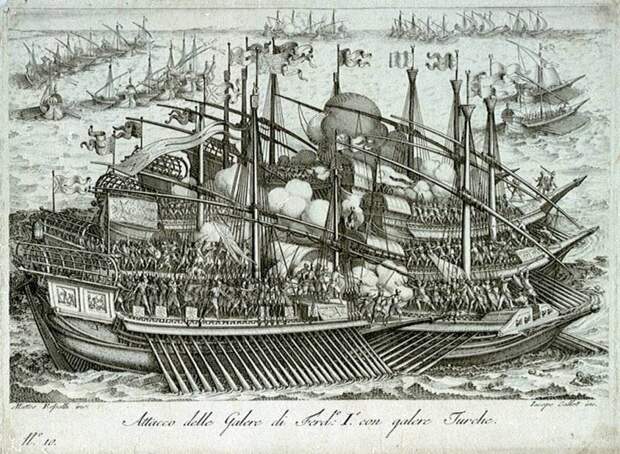 Matteo inc. Iacopo Callot inc.
Attacco delle Galere di Ferd.º I.º con galere Turche.
Nº. 10.